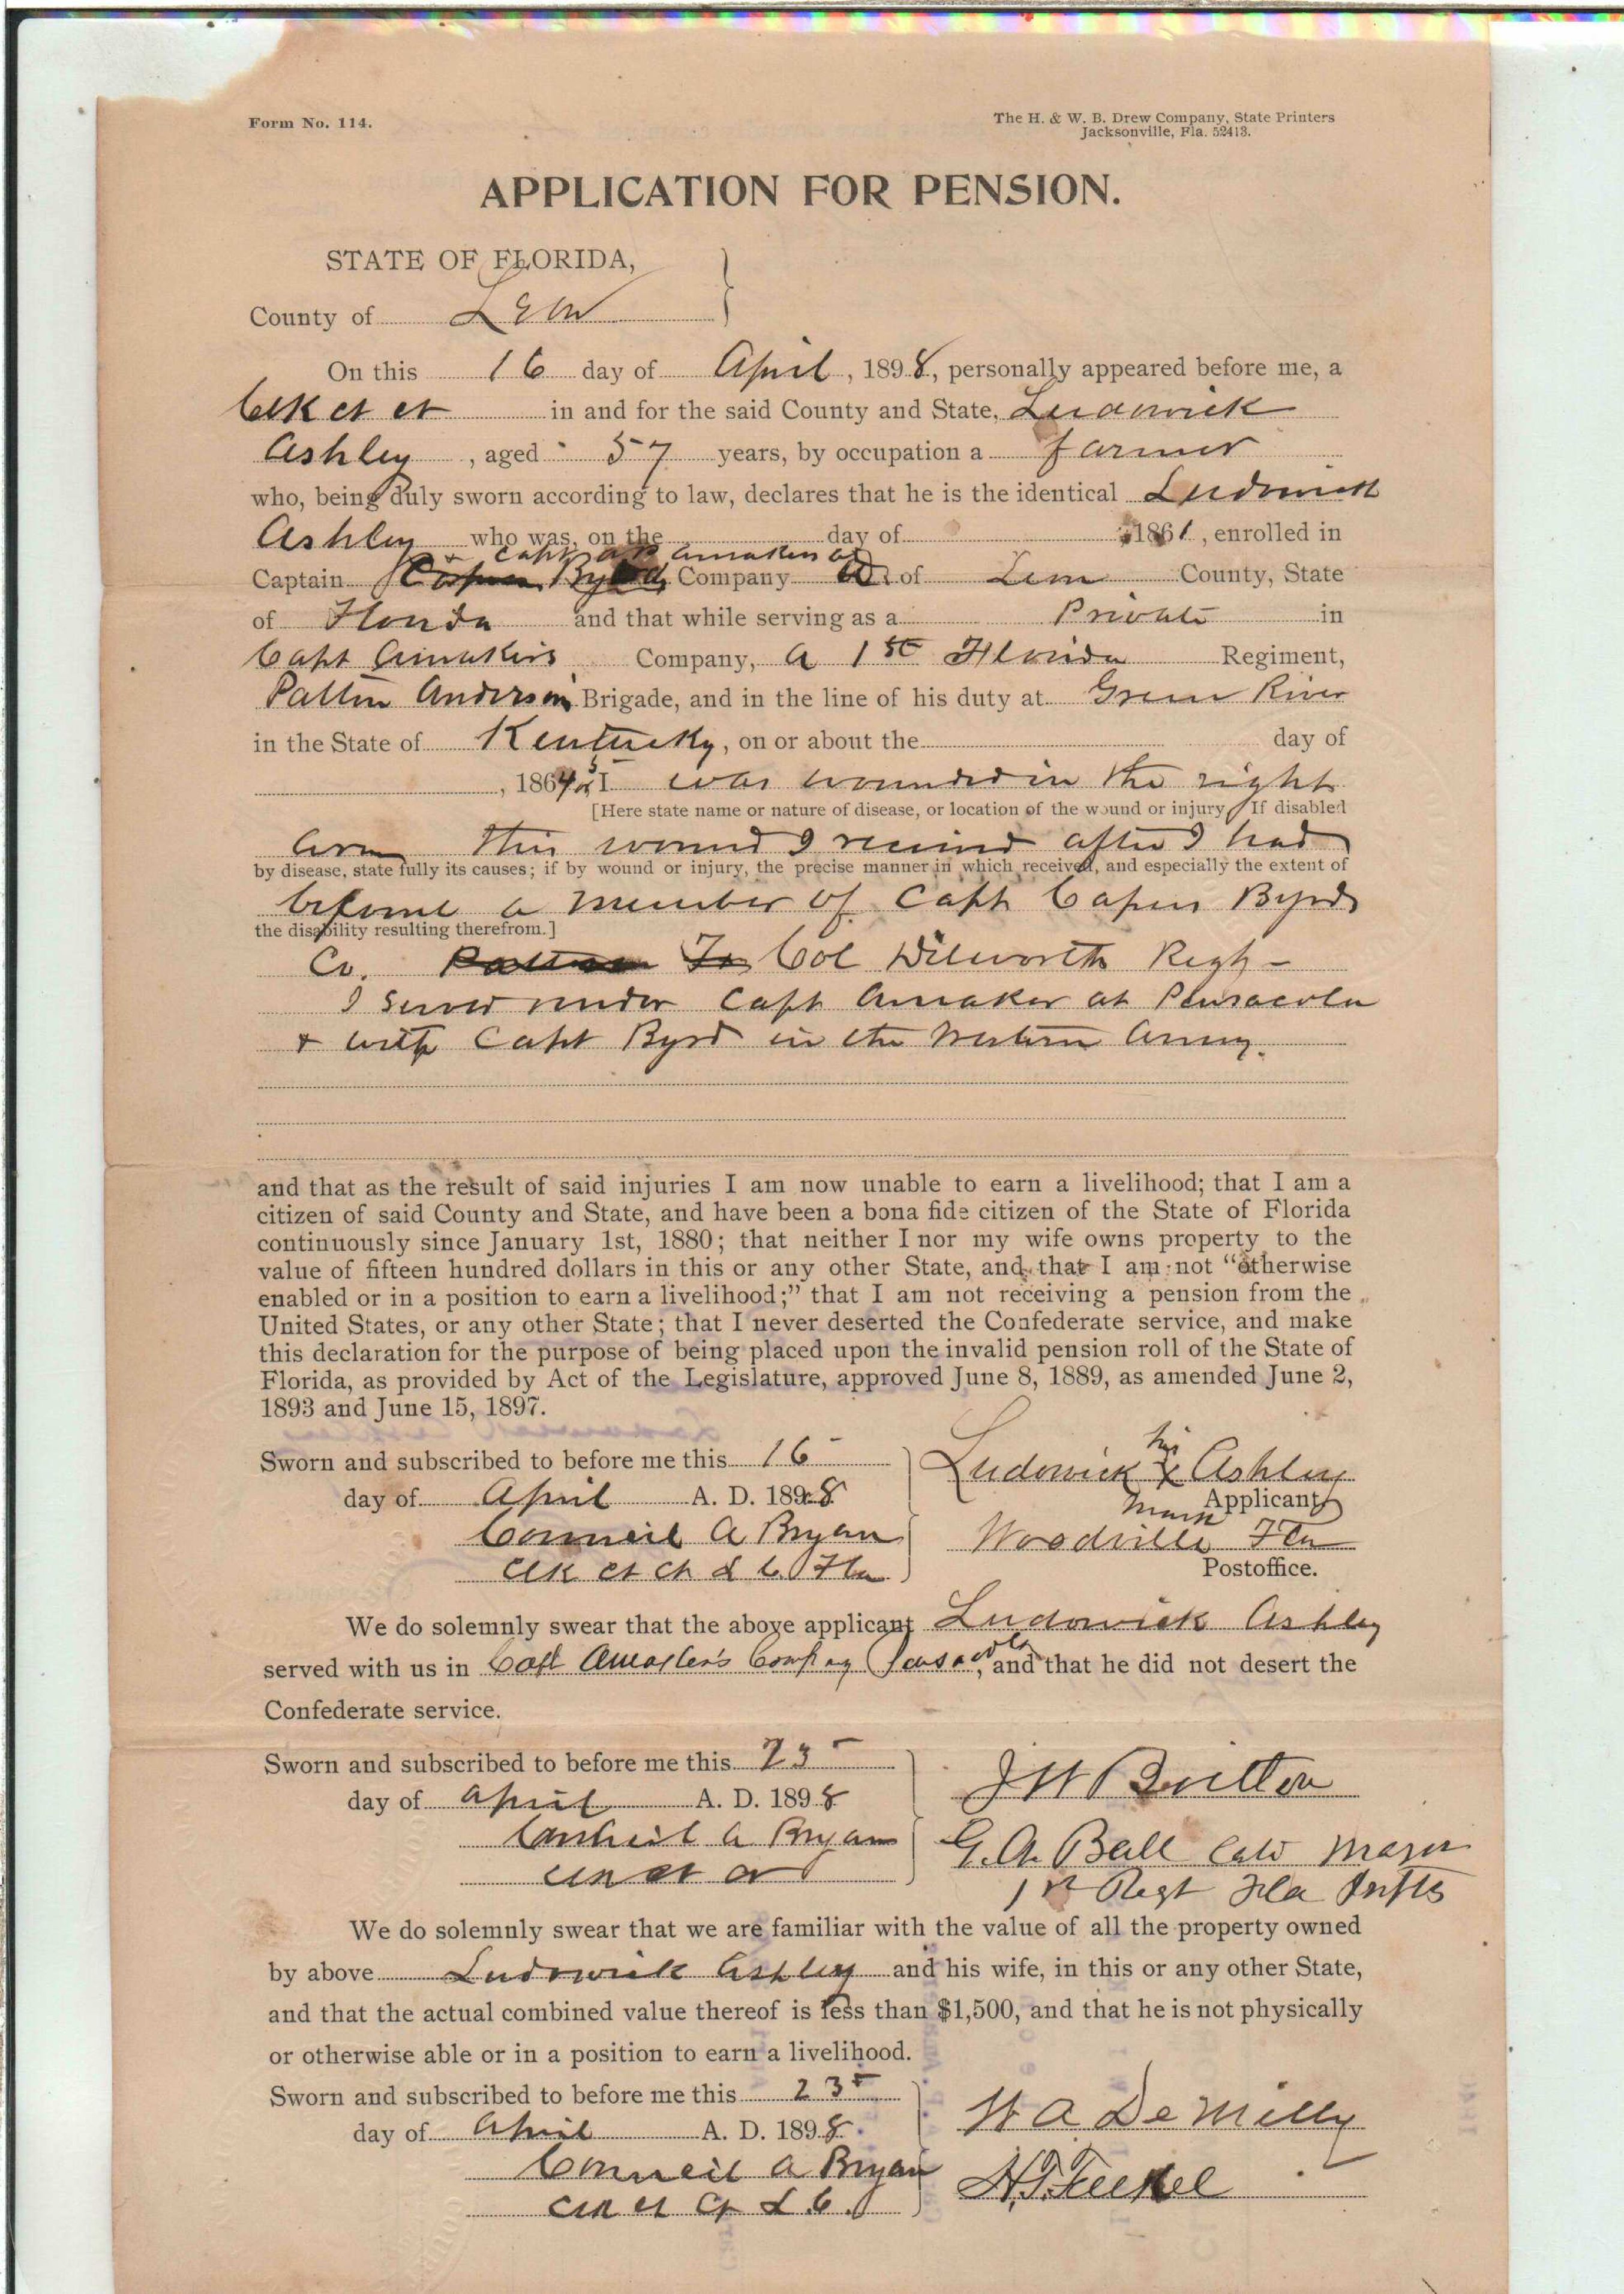 Form No. 114.
The H. & W. B. Drew Company, State Printers
Jacksonville, Fla. 52413.
APPLICATION FOR PENSION.
STATE OF FLORIDA,
County of Leon
On this 16 day of April, 1898, personally appeared before me, a
Clk ct ct in and for the said County and State, Ludowick
Ashley, aged 57 years, by occupation a farmer
who, being duly sworn according to law, declares that he is the identical Ludowick
Ashley who was, on the day of 1861, enrolled in
& Capt Amakers
Captain Byrds Company of Leon County, State
of Florida and that while serving as a Private in
Capt Amakers Company, A 1st Florida Regiment,
Patton Anderson Brigade, and in the line of his duty at Green River
in the State of Kentucky, on or about the day of
, 1864 or 5 I was wounded in the right
[Here state name or nature of disease, or location of the wound or injury. If disabled
arm this wound I received after I had
by disease, state fully its causes; if by wound or injury, the precise manner in which received, and especially the extent of
become a member of Capt Capers Byrds
the disability resulting therefrom.]
Co. Col Dilworth Regt-
I served under Capt Amaker at Pensacola
& with Capt Byrd in the Western Army.
and that as the result of said injuries I am now unable to earn a livelihood; that I am a
citizen of said County and State, and have been a bona fide citizen of the State of Florida
continuously since January 1st, 1880; that neither I nor my wife owns property to the
value of fifteen hundred dollars in this or any other State, and that I am not "otherwise
enabled or in a position to earn a livelihood;" that I am not receiving a pension from the
United States, or any other State; that I never deserted the Confederate service, and make
this declaration for the purpose of being placed upon the invalid pension roll of the State of
Florida, as provided by Act of the Legislature, approved June 8, 1889, as amended June 2,
1893 and June 15, 1897.
Sworn and subscribed to before me this 16
day of April A. D. 1898
Council A Bryan
Clk ct ct L C. Fla
his
Ludowick x Ashley
mark Applicant
Woodville Fla
Postoffice.
We do solemnly swear that the above applicant Ludowick Ashley
served with us in Capt Amaker's Company Pensacola, and that he did not desert the
Confederate service.
Sworn and subscribed to before me this 23
day of April A. D. 1898
Council A Bryan
Clk ct ct
J W Britton
G. A. Ball Late Major
1st Regt Fla Infty
We do solemnly swear that we are familiar with the value of all the property owned
by above Ludowick Ashley and his wife, in this or any other State,
and that the actual combined value thereof is less than $1,500, and that he is not physically
or otherwise able or in a position to earn a livelihood.
Sworn and subscribed to before me this 23
day of April A. D. 1898.
Council A Bryan
Clk ct ct L C.
W A DeMilly
H. T. Felkel